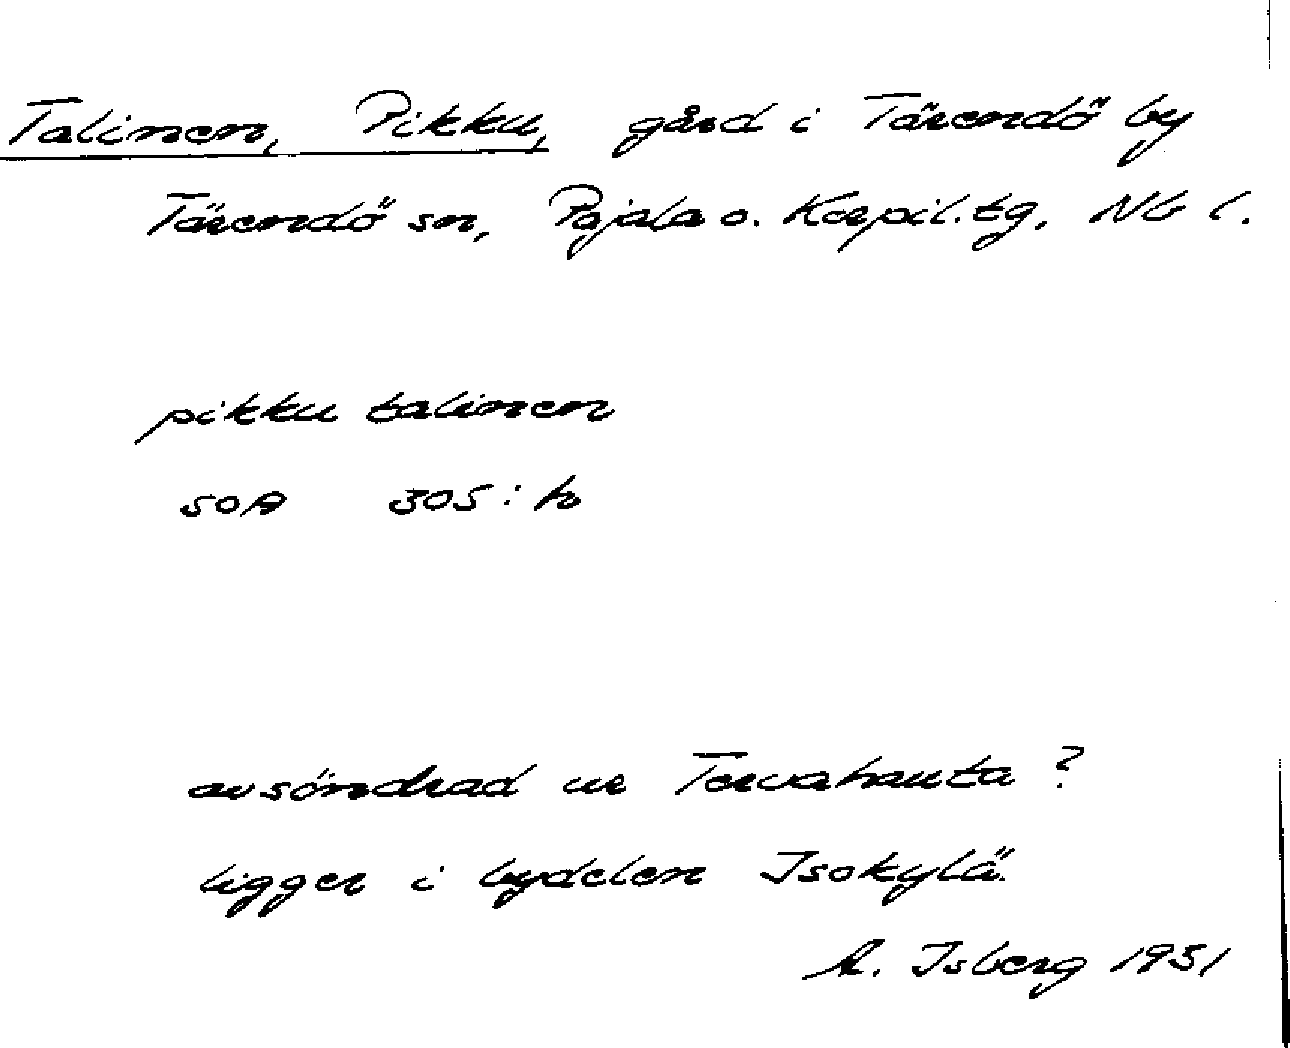 Talinen, Pikku, gård i Tärendö by
Tärendö sn, Pajala o. Korpil. tg, Nb l.
pikku talinen
SOA 305: b
avsöndrad ur Tervahauta?
ligger i bydelen Isokylä.
A. Isberg 1931